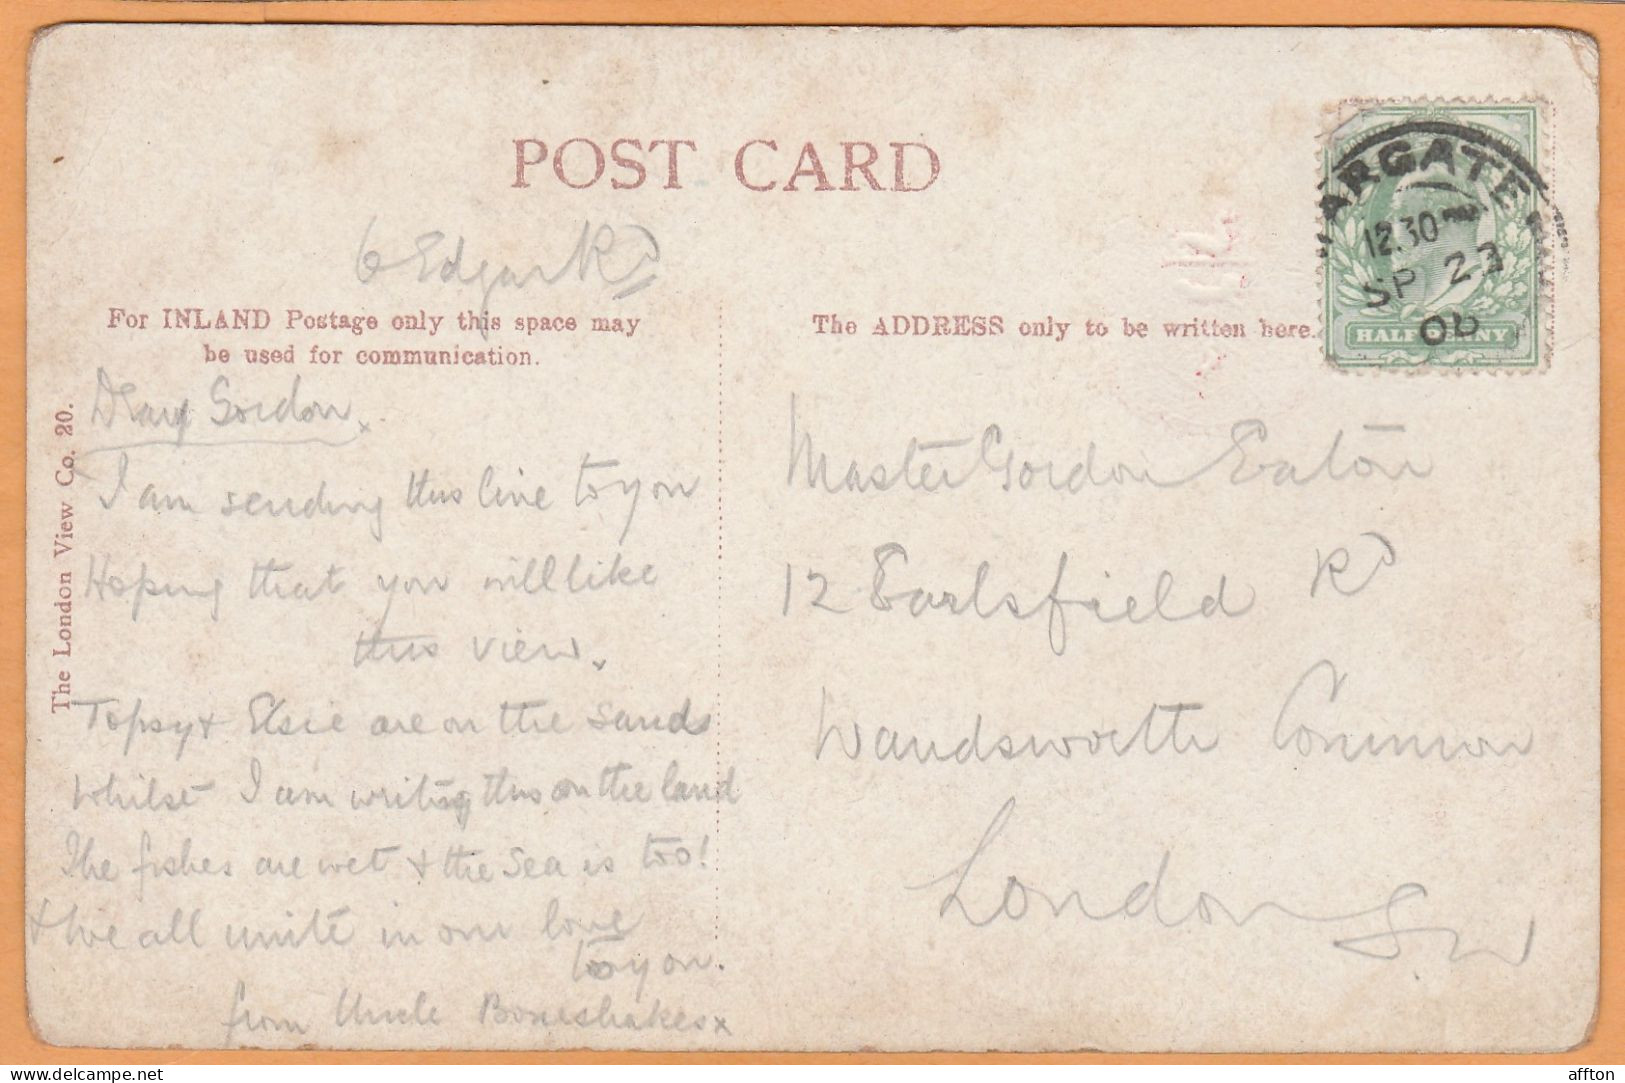 POST CARD
6 Edgar Rd
For INLAND Postage only this space may
be used for communication.
The ADDRESS only to be written here.
MARGATE
12.30 PM
SP 23
06
HALFPENNY
The London View Co. 20.
Dear Gordon,
I am sending this line to you
Hoping that you will like
this view.
Topsy & Elsie are on the sands
Whilst I am writing this on the land
The fishes are wet & the sea is too!
& We all unite in our love
to you.
from Uncle Boneshakes x
Master Gordon Eaton
12 Earlsfield Rd
Wandsworth Common
London SW
delcampe.net
affton